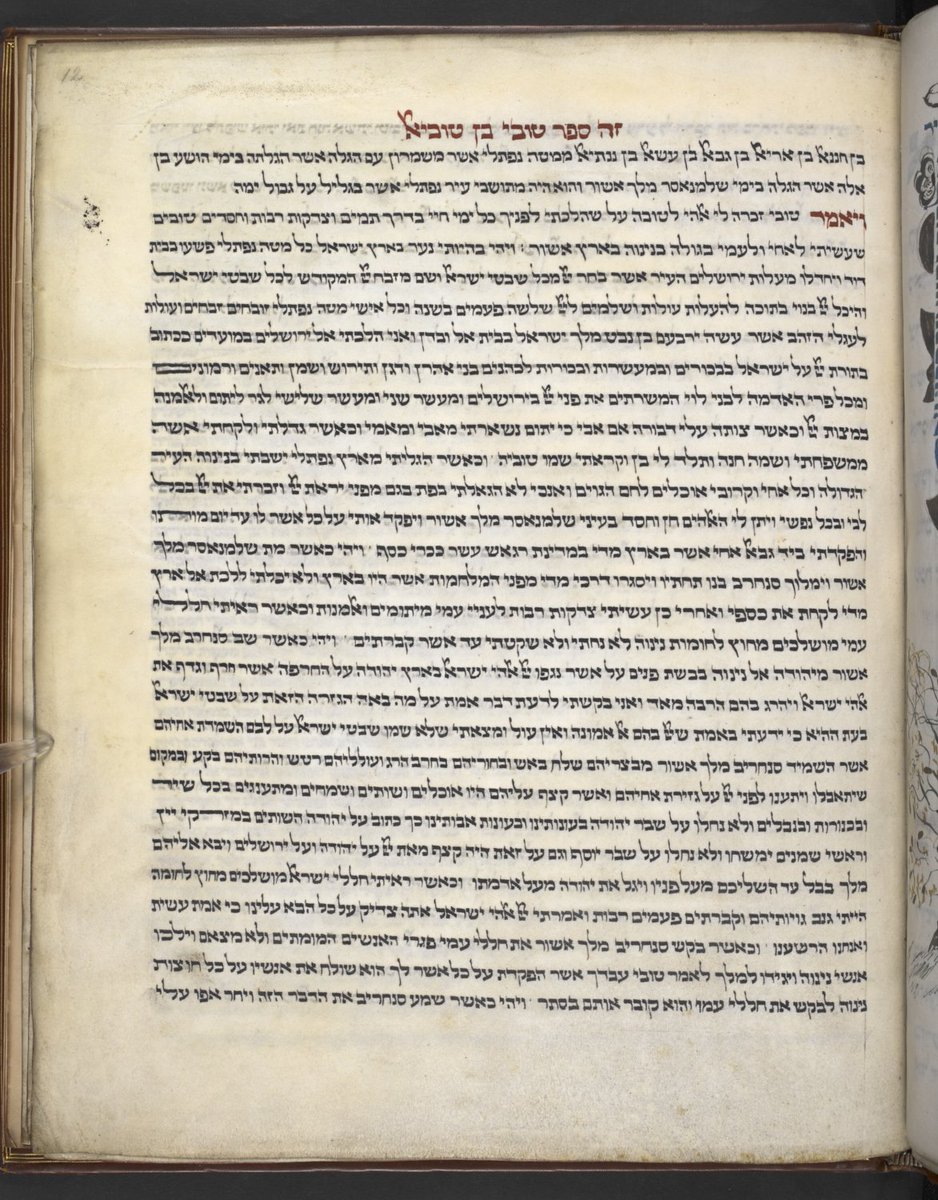 12
זה ספר טובי בן טוביאל
בן חננאל בן אריאל בן גבאל בן עשאל בן נתיאל ממטה נפתלי אשר משמרון עם הגלה אשר הגלתה בימי הושע בן
אלה אשר הגלה בימי שלמנאסר מלך אשור והוא היה מתושבי עיר נפתלי אשר בגליל על גבול ימה
ויאמר טובי זכרה לי אלהי לטובה על שהלכתי לפניך כל ימי חיי בדרך תמים וצדקות רבות וחסדים טובים
שעשיתי לאחי ולעמי בגולה בנינוה בארץ אשור ויהי בהיותי נער בארץ ישראל כל מטה נפתלי פשעו בבית
דוד ויחדלו מעלות ירושלים העיר אשר בחר מכל שבטי ישראל ושם מזבח המקודש לכל שבטי ישראל
והיכל בנוי בתוכה להעלות עולות ושלמים שלשה פעמים בשנה וכל אישי מטה נפתלי זובחים זבחים ועולות
לעגלי הזהב אשר עשה ירבעם בן נבט מלך ישראל בבית אל ובדן ואני הלכתי אל ירושלים במועדים ככתוב
בתורת על ישראל בבכורים ובמעשרות ובבכורות לכהנים בני אהרן ודגן ותירוש ושמן ותאנים ורמונים
ומכל פרי האדמה לבני לוי המשרתים את פני בירושלים ומעשר שני ומעשר שלישי לגר ליתום ולאלמנה
במצות וכאשר צותה עלי דבורה אם אבי כי יתום נשארתי מאבי ומאמי וכאשר גדלתי ולקחתי אשה
ממשפחתי ושמה חנה ותלד לי בן וקראתי שמו טוביה וכאשר הגליתי מארץ נפתלי ישבתי בנינוה העיר
הגדולה וכל אחי וקרובי אוכלים לחם הגוים ואנכי לא הגאלתי בפת בגם מפני יראת וזכרתי את בכל
לבי ובכל נפשי ויתן לי האלהים חן וחסד בעיני שלמנאסר מלך אשור ויפקד אותי על כל אשר לו עד יום מותו
והפקדתי ביד גבאל אחי אשר בארץ מדי במדינת ראגש עשר ככרי כסף ויהי כאשר מת שלמנאסר מלך
אשור וימלוך סנחרב בנו תחתיו ויסגרו דרכי מדי מפני המלחמות אשר היו בארץ ולא יכלתי ללכת אל ארץ
מדי לקחת את כספי ואחרי כן עשיתי צדקות רבות לעניי עמי מיתומים ואלמנות וכאשר ראיתי חללי
עמי מושלכים מחוץ לחומות נינוה לא נחתי ולא שקטתי עד אשר קברתים ויהי כאשר שב סנחרב מלך
אשור מיהודה אל נינוה בבשת פנים על אשר נגפו אלהי ישראל בארץ יהודה על החרפה אשר חרף וגדף את
אלהי ישראל ויהרג בהם הרבה מאד ואני בקשתי לדעת דבר אמת על מה באה הגזרה הזאת על שבטי ישראל
בעת ההיא כי ידעתי באמת אל אמונה ואין עול ומצאתי שלא שמו שבטי ישראל על לבם השמדת אחיהם
אשר השמיד סנחריב מלך אשור מבצריהם שלח באש ובחוריהם בחרב הרג ועולליהם רטש והרותיהם בקע ובמקום
שיתאבלו ויתענו לפני על גזירת אחיהם ואשר קצף עליהם היו אוכלים ושותים ושמחים ומתענגים בכל שיר
ובכנורות ובנבלים ולא נחלו על שבר יהודה בעונותינו ובעונות אבותינו כך כתוב על יהודה השותים במזרקי יין
וראשי שמנים ימשחו ולא נחלו על שבר יוסף וגם על זאת היה קצף מאת על יהודה ועל ירושלים ויבא אליהם
מלך בבל עד השליכם מעל פניו ויגל את יהודה מעל אדמתו וכאשר ראיתי חללי ישראל מושלכים מחוץ לחומה
הייתי גנב גויותיהם וקברתים פעמים רבות ואמרתי אלהי ישראל אתה צדיק על כל הבא עלינו כי אמת עשית
ואנחנו הרשענו וכאשר בקש סנחריב מלך אשור את חללי עמי פגרי האנשים המומתים ולא מצאם וילכו
אנשי נינוה ויגידו למלך לאמר טובי עבדך אשר הפקדת על כל אשר לך הוא שולח את אנשיו על כל חוצות
נינוה לבקש את חללי עמו והוא קובר אותם בסתר ויהי כאשר שמע סנחריב את הדבר הזה ויחר אפו עלי